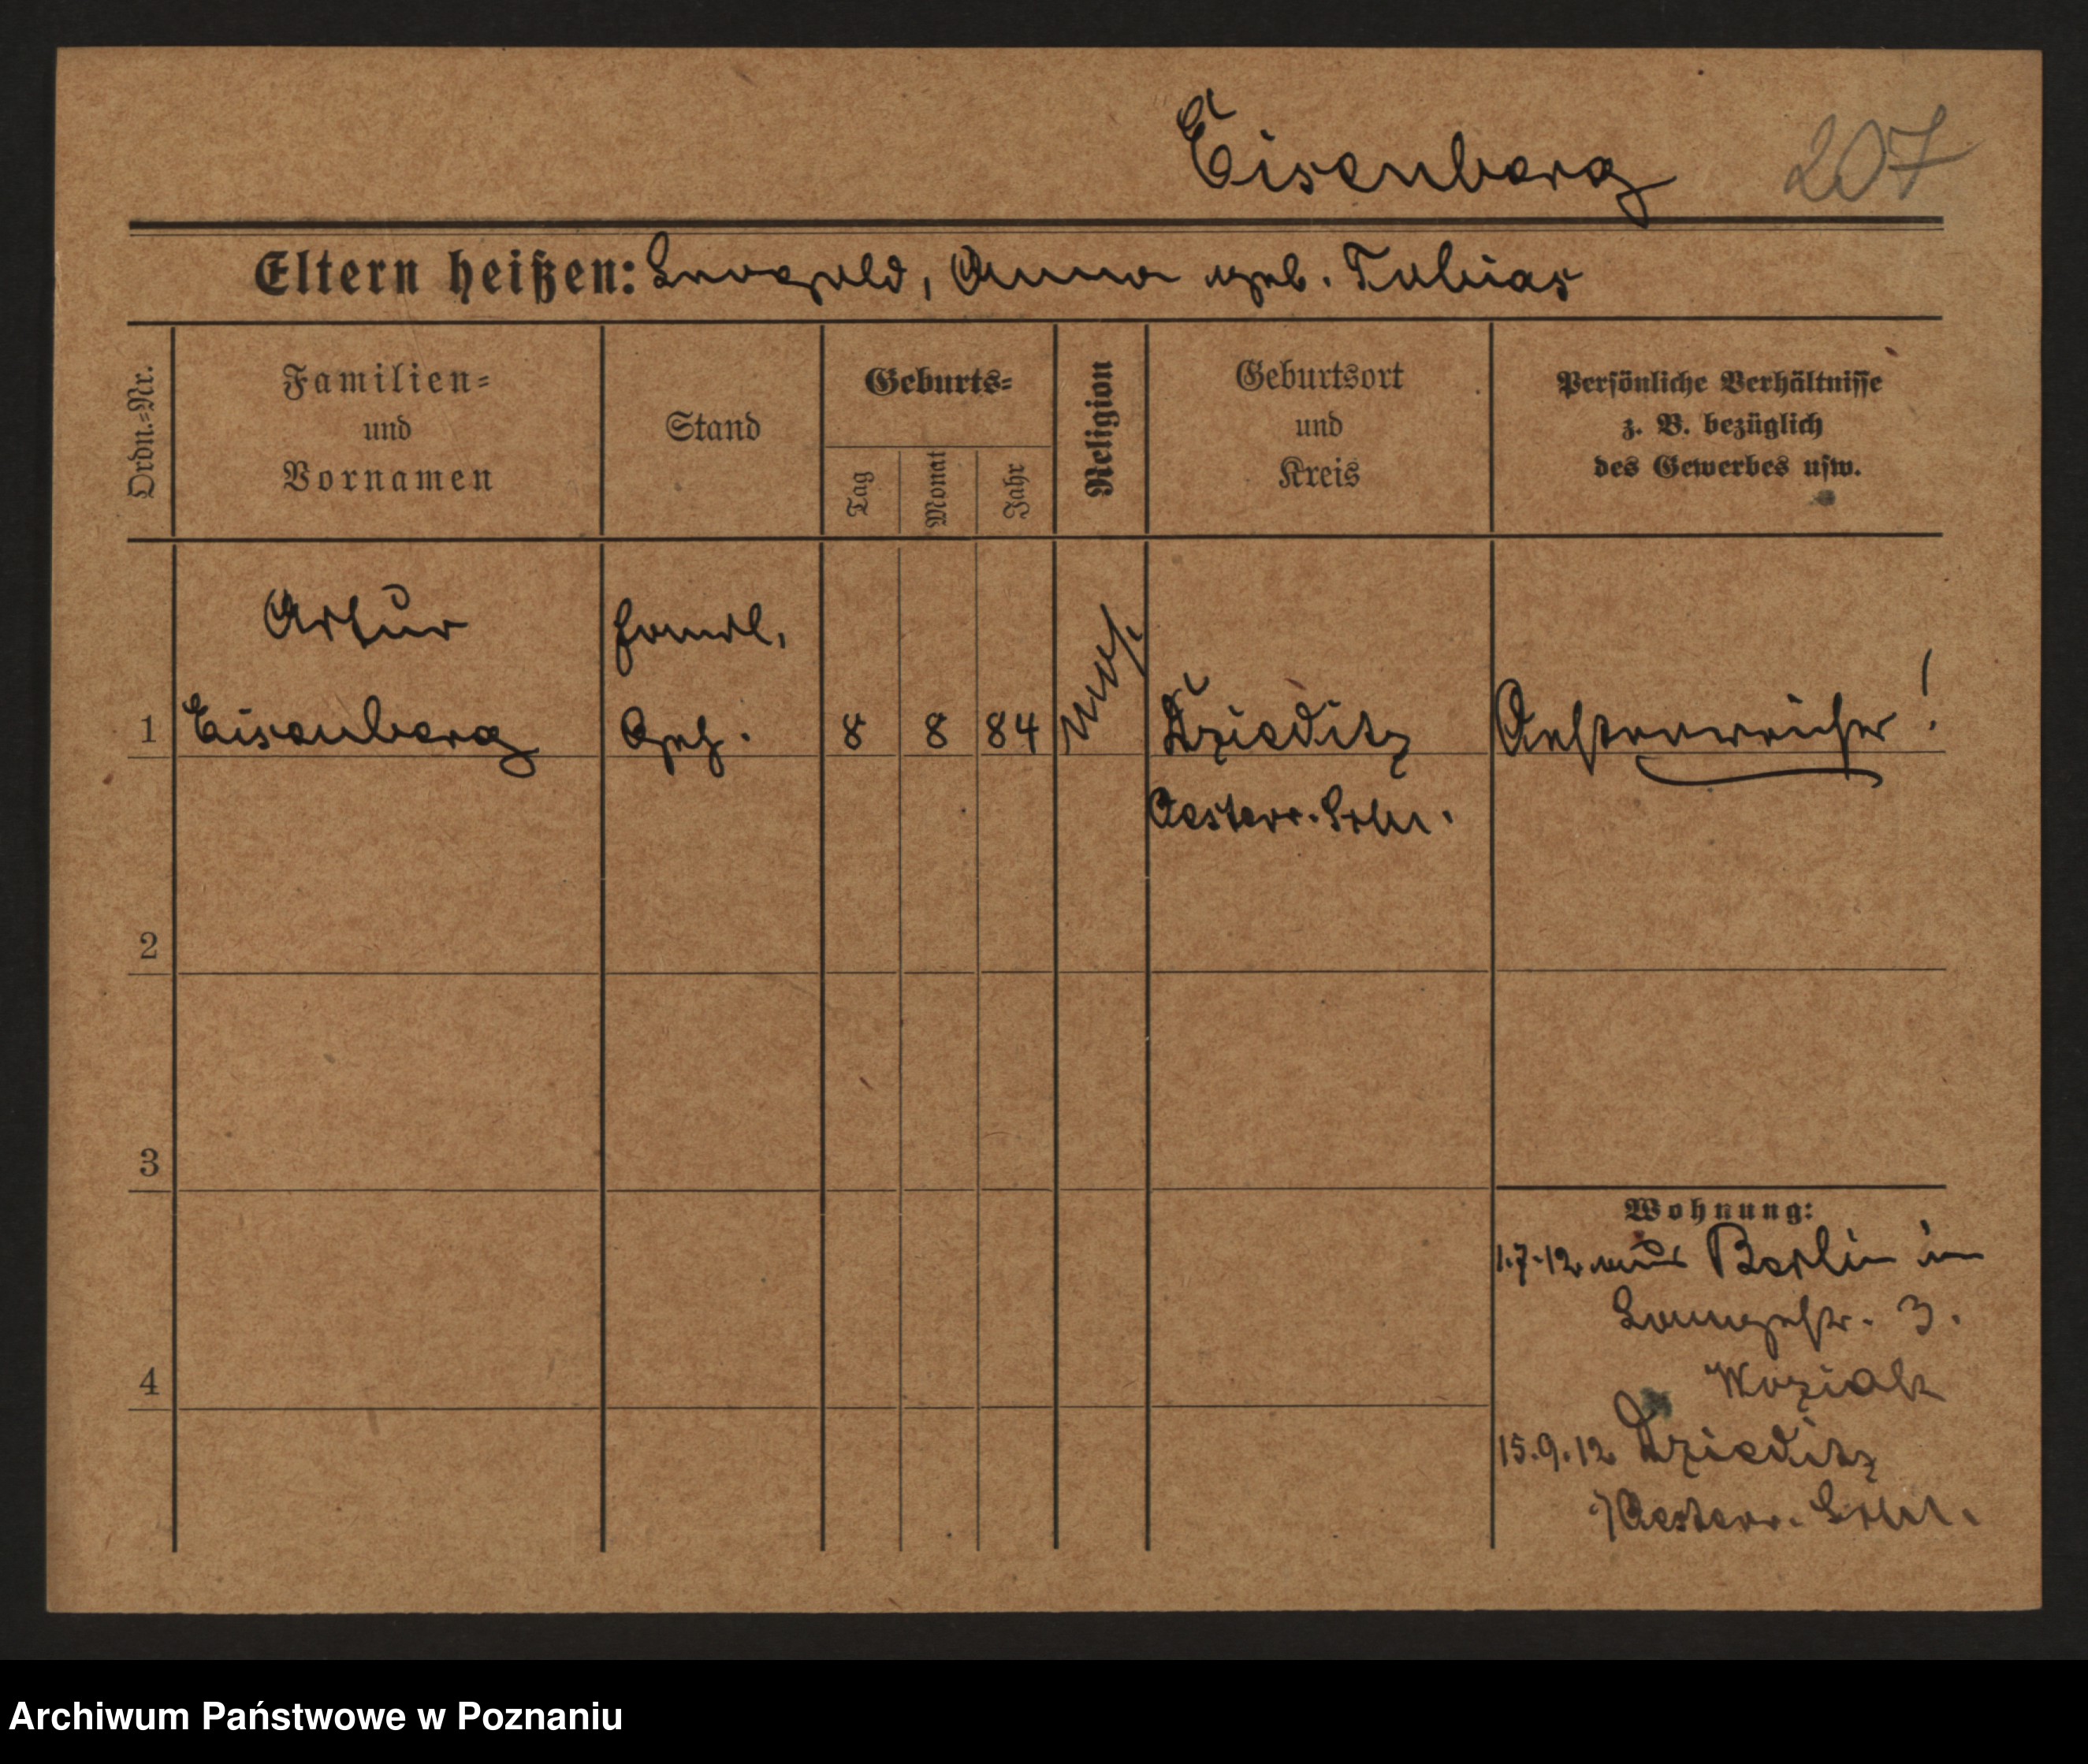 Eisenberg 207
Eltern heißen: Leopold, Anna geb. Tobias
Ordn.=Nr.
Familien=
und
Vornamen
Stand
Geburts=
Tag
Monat
Jahr
Religion
Geburtsort
und
Kreis
Persönliche Verhältnisse
z. B. bezüglich
des Gewerbes usw.
Artur Handl.
1 Eisenberg Geh. 8 8 84 mos. Dzieditz Oesterreicher!
Oesterr. Schl.
2
3
Wohnung:
1.7.12 aus Berlin in
Langestr. 3.
4 Woziak
15.9.12 Dzieditz
Oesterr. Schl.
Archiwum Państwowe w Poznaniu